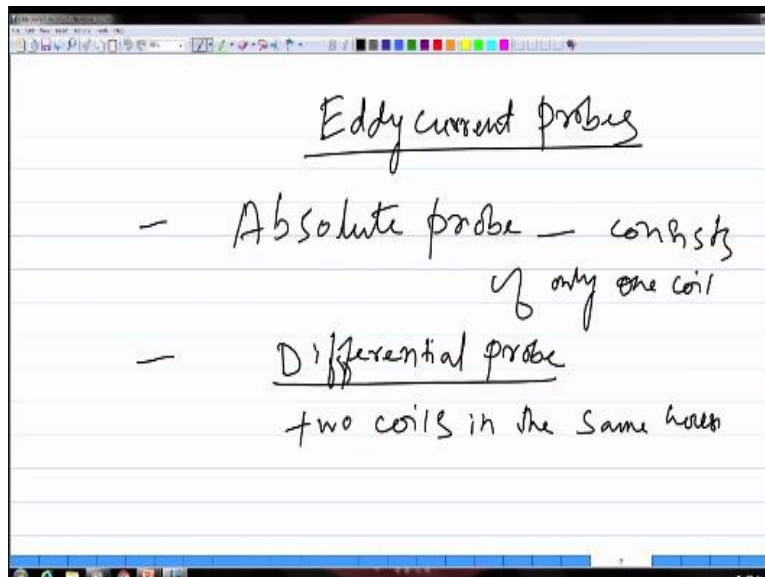 Eddy current probes
- Absolute probe - consists
of only one coil
- Differential probe
two coils in the same